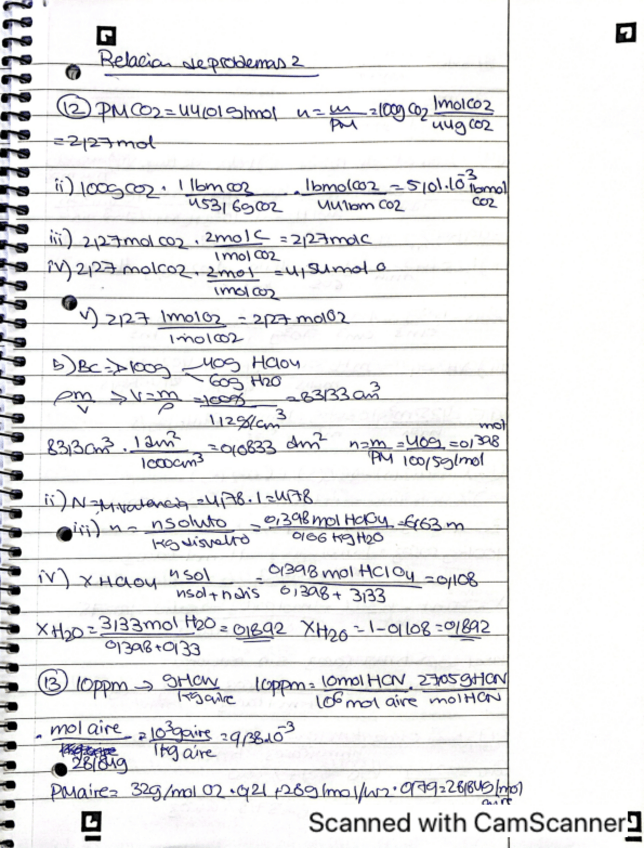 Relacion de problemas 2
(12) PMCO2 = 44,01 g/mol n = m/PM = 100g CO2 1molCO2/44gCO2
= 2,27 mol
ii) 100g CO2 · 1 lbm CO2/453,6g CO2 · 1lbmol CO2/44 lbm CO2 = 5,01·10⁻³ lbmol CO2
iii) 2,27 mol CO2 · 2mol C/1mol CO2 = 2,27 mol C
iv) 2,27 mol CO2 · 2mol/1mol CO2 = 4,54 mol O
v) 2,27 1molO2/1molCO2 = 2,27 mol O2
b) BC => 100g 40g HClO4
60g H2O
ρ m/V > V = m/ρ = 100g/1,12g/cm³ = 83,33 cm³
83,3 cm³ · 1 dm²/1000cm³ = 0,0833 dm² n = m/PM = 40g/100,5g/mol = 0,398 mol
ii) N = M·valencia = 4,78 · 1 = 4,78
iii) n = nsoluto/kg disvelto = 0,398 mol HClO4/0,06 kg H2O = 6,63 m
iv) XHClO4 nsol/nsol+ndis = 0,398 mol HClO4/0,398 + 3,33 = 0,108
XH2O = 3,33 mol H2O/0,398+0,133 = 0,892 XH2O = 1-0,108 = 0,892
(13) 10ppm → gHCN/kg aire 10ppm = 10mol HCN/10⁶ mol aire · 27,05gHCN/mol HCN
· mol aire/28,84g = 10³g aire/1kg aire = 9,38·10⁻³
PMaire = 32g/mol O2 · 0,21 + 28g/mol N2 · 0,79 = 28,84g/mol aire
Scanned with CamScanner